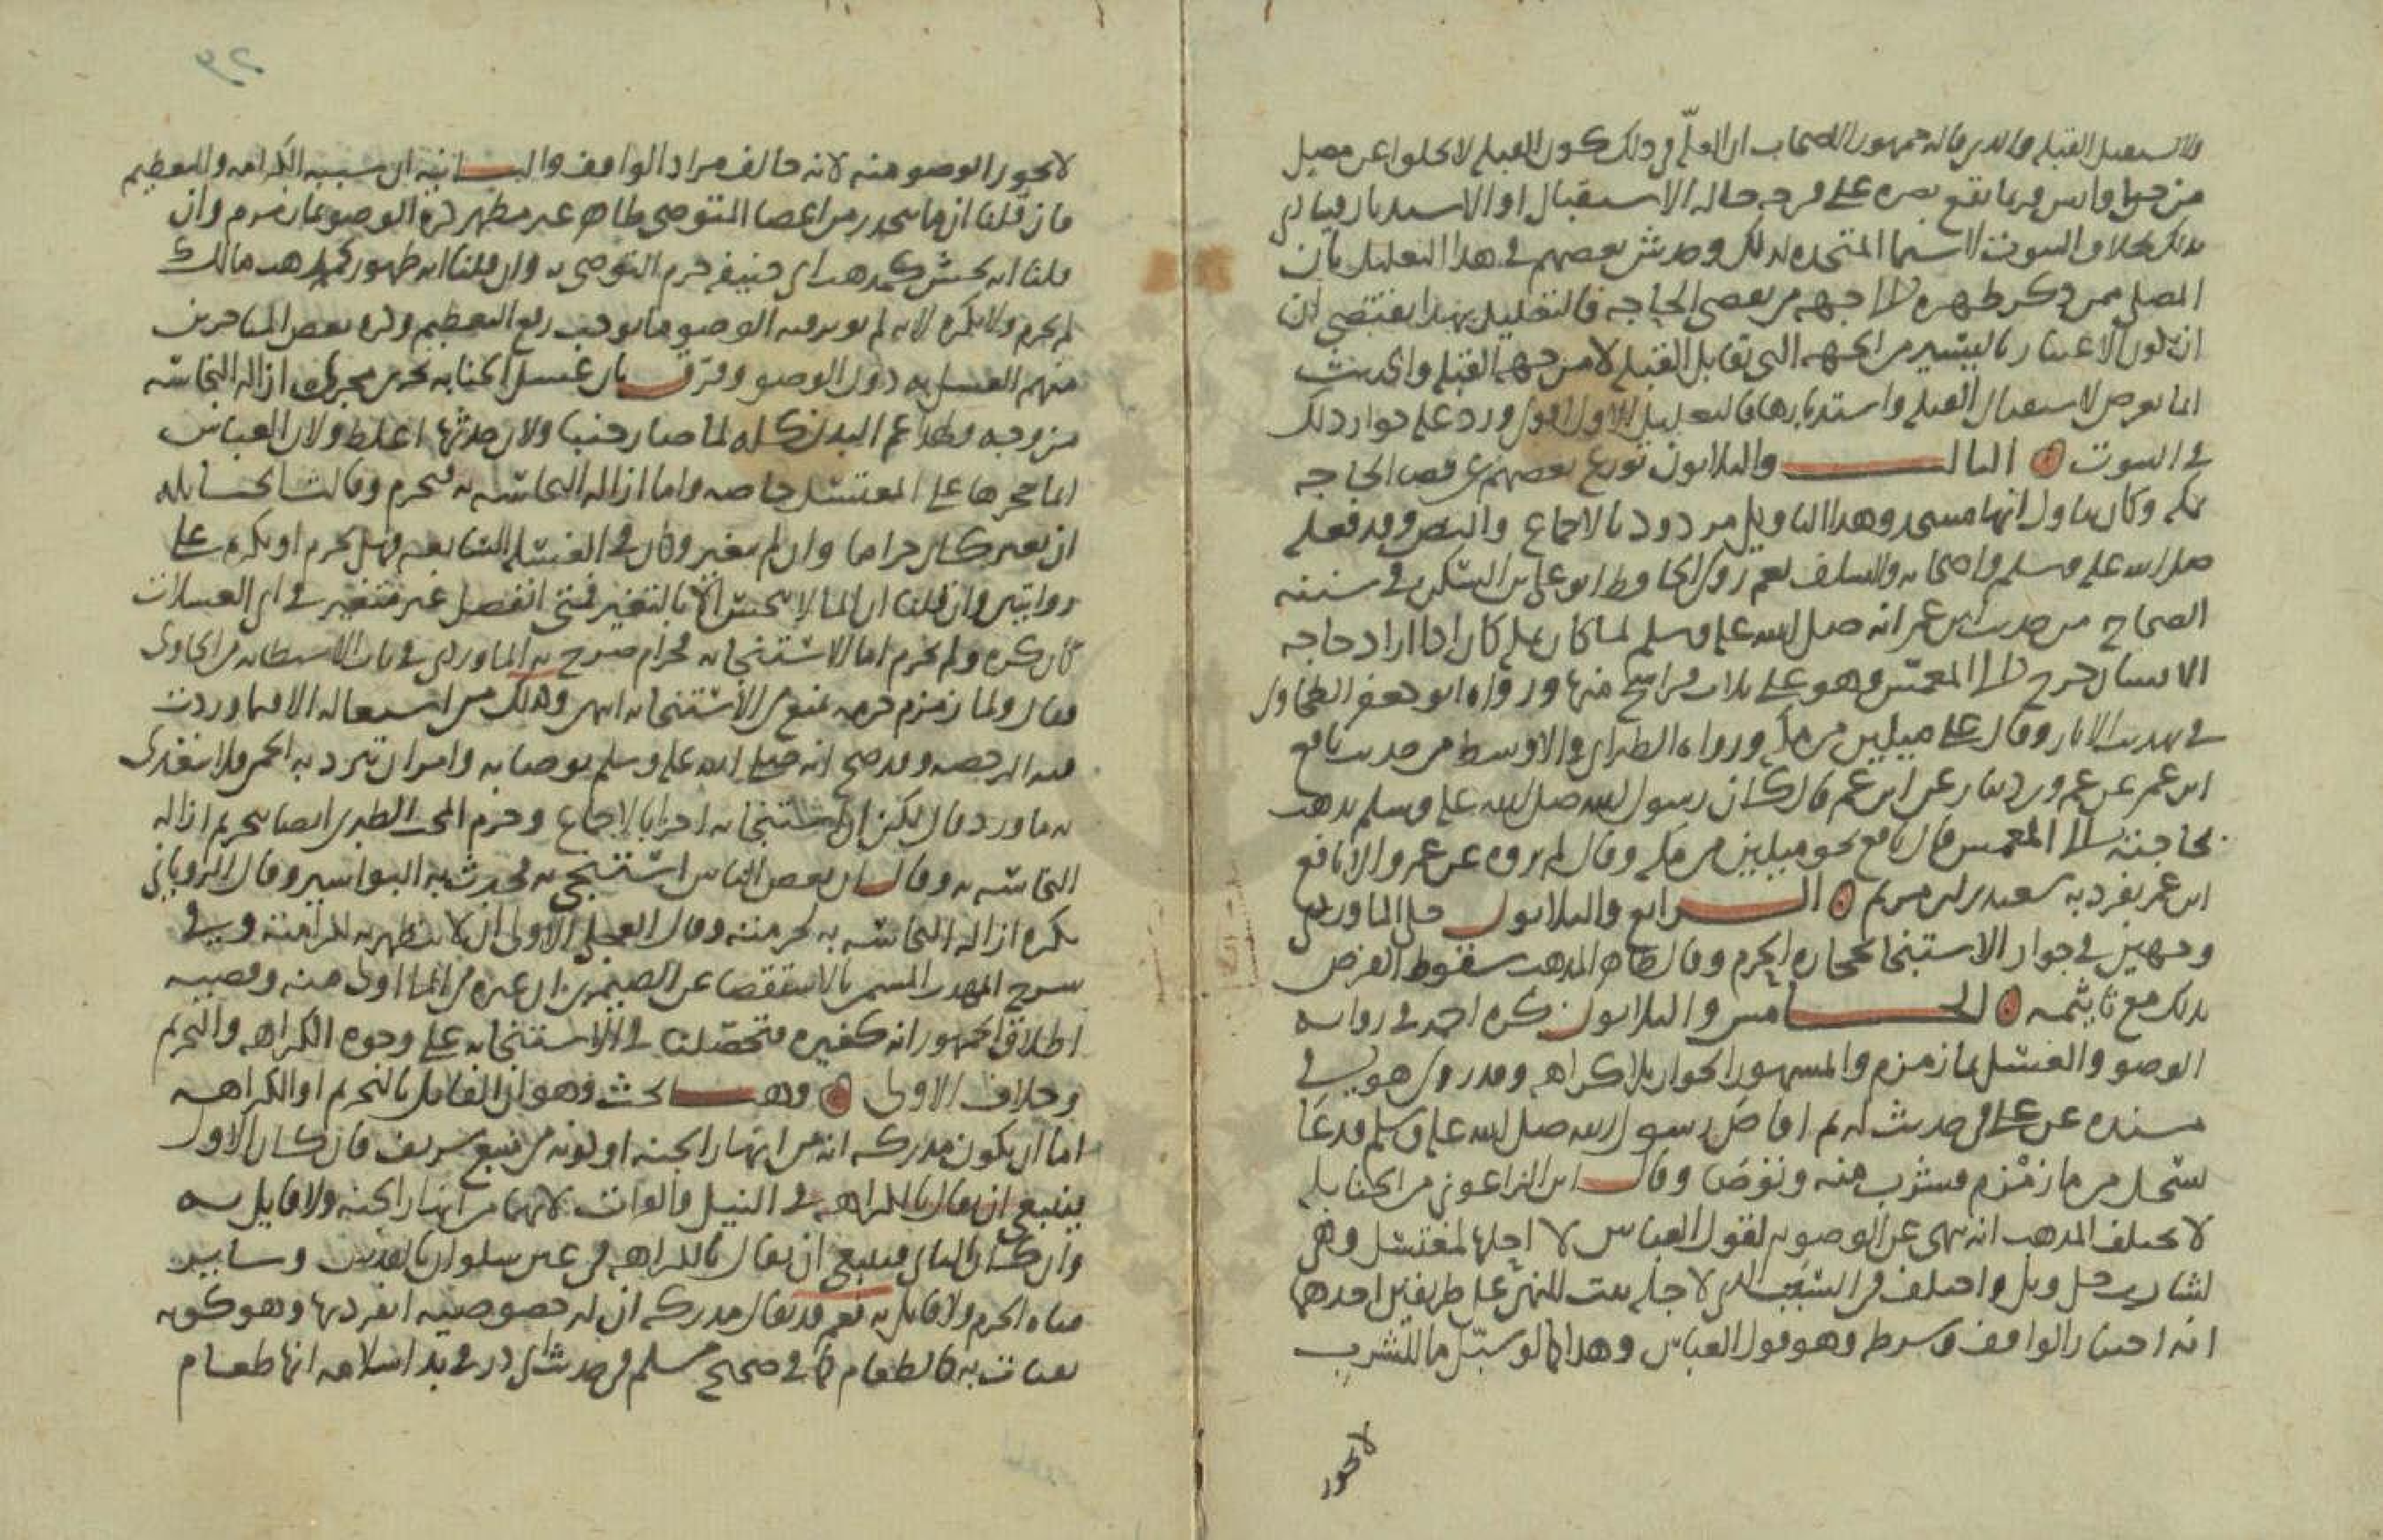 ولا يستقبل القبلة والذي قاله جمهور الاصحاب ان العلة في ذلك كون القبلة لا يخلوا عن مصل
من جن وانس فربما يقع بصره على فرجه حالة الاستقبال او الاستدبار فيتاذى
بذلك بخلاف البيوت لا سيما المتخذه لذلك وحدش بعضهم في هذا التعليل بان
المصلى ممن ذكر ظهره الى جهه من يقضى الحاجه فالتعليل بهذا يقتضى ان
ان يكون الاعتبار بالتستر من الجهه التي تقابل القبله لا من جهه القبله والحديث
انما تعرض لاستقبال القبله واستدبارها فالتعليل الاول اقوى ورد على جواز ذلك
في البيوت الثالث والثلاثون تورع بعضهم عن قضى الحاجه
بمكه وكان يتاول انها مسجد وهذا التاويل مردود بالاجماع والنص وقد فعله
صلى الله عليه وسلم واصحابه والسلف نعم روى الحافظ ابو على بن السكن في سننه
الصحاح من حديث ابن عمر انه صلى الله عليه وسلم لما كان بمكه كان اذا اراد حاجه
الانسان خرج الى المغمس وهو على ثلاث فراسخ منها ورواه ابو جعفر الطحاوى
في تهذيب الاثار وقال على ميلين من مكه ورواه الطبراني في الاوسط من حديث نافع
ابن عمر عن عمرو بن دينار عن ابن عمر قال كان رسول الله صلى الله عليه وسلم يذهب
لحاجته الى المغمس قال نافع نحو ميلين من مكه وقال لم يروه عن عمرو الا نافع
ابن عمر تفرد به سعيد بن ابي مريم الرابع والثلاثون حكى الماوردى
وجهين في جواز الاستنجا بحجاره الحرم وقال ظاهر المذهب سقوط الفرض
بذلك مع تاثيمه الخامس والثلاثون كره احمد في روايه
الوضوء والغسل بما زمزم والمشهور الجواز بلا كراهه وقد روى هو في
مسنده عن على في حديث له ثم افاض رسول الله صلى الله عليه وسلم فدعا
بسجل من ما زمزم فشرب منه وتوضا وقال ابن الزاغونى من الحنابله
لا يختلف المذهب انه نهى عن الوضو به لقول العباس لا احلها لمغتسل وهى
لشارب حل وبل واختلف في السبب الذي لاجله يثبت النهى على طريقين احدهما
انه اختيار الواقف وشرطه وهو قول العباس وهذا كما لو سبّل ما للشرب
لا يجوز
لا يجوز الوضو منه لانه خالف مراد الواقف والثانية ان سببه الكرامه والتعظيم
فان قلنا ان ما ينحدر من اعضا المتوضى طاهر غير مطهر كره الوضو بما زمزم وان
قلنا انه نجس كمذهب ابي حنيفه حرم التوضى به وان قلنا انه طهور كمذهب مالك
لم يحرم ولا يكره لانه لم يوثر فيه الوضو ما يوجب رفع التعظيم وكره بعض المتاخرين
منهم الغسل به دون الوضو وفرق بان غسل الجنابه تجرى مجرى ازاله النجاسه
من وجه ولهذا عم البدن كله لما صار جنبا ولان حدثها اغلظ ولان العباس
انما حجرها على المغتسل خاصه واما ازاله النجاسه به فتحرم وقالت الحنابله
ان تغير كان حراما وان لم يتغير وكان في الغسله السابعه فهل يحرم او يكره على
روايتين وان قلنا ان الما لا ينجس الا بالتغير فمتى انفصل غير متغير في اى الغسلات
كان كره ولم يحرم اما الاستنجا به فحرام صرح به الماوردي في باب الاستطابه من الحاوى
فقال ولما زمزم حرمه تمنع من الاستنجا به انتهى وكذلك من استعماله الا فيما وردت
فيه الرخصه وقد صح انه صلى الله عليه وسلم توضا به وامر ان تبرد به الحمى فلا يتعدى
به ما ورد قال لكن ان استنجا به اجزا بالاجماع وحرم المحب الطبرى ايضا تحريم ازاله
النجاسه به وقال ان بعض الناس استنجى به فحدث به البواسير وقال الرويانى
يكره ازاله النجاسه به لحرمته وقال العجلى الاولى ان لا يتطهر به لكرامته وفي
شرح المهذب المسمى بالاستقصا عن الصيمرى ان غيره من الما اولى منه وقضيه
اطلاق الجمهور انه كغيره فتحصلنا في الاستنجا به على وجوه الكراهه والتحريم
وخلاف الاولى وهنا بحث وهو ان القايل بالتحريم او الكراهه
اما ان يكون مدركه انه من انهار الجنه او كونه من منبع شريف فان كان الاول
ينبغي ان يقال بالكراهه في النيل والفرات لانهما من انهار الجنه ولا قايل به
وان كان الثاني فينبغي ان يقال بالكراهه في عين سلوان بالقدس وساير
مياه الحرم ولا قايل به نعم قد يقال مدركه ان له خصوصيه انفرد بها وهو كونه
يقتات به كالطعام كما في صحيح مسلم في حديث ابي ذر في بدا اسلامه انها طعام